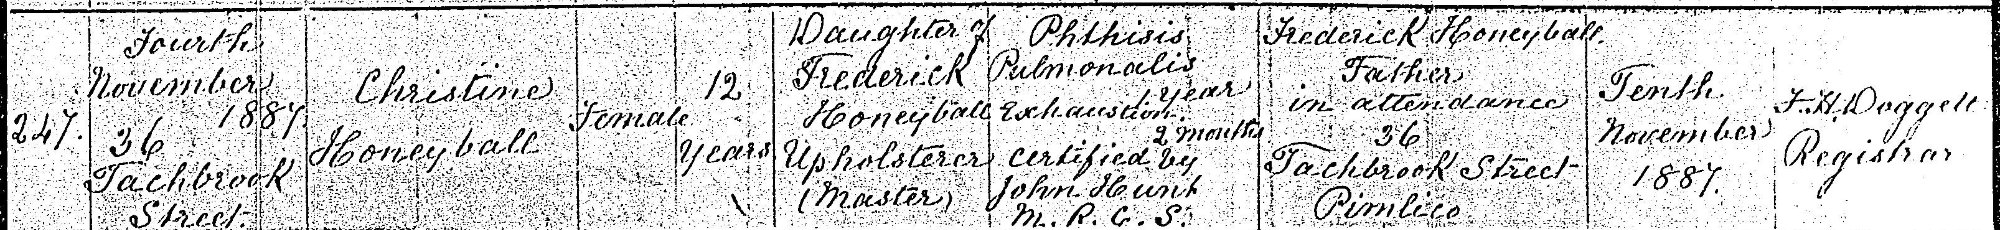 247.
Fourth
November
1887.
36
Tachbrook
Street
Christine
Honeyball
Female
12
years
Daughter of
Frederick
Honeyball
Upholsterer
(Master)
Phthisis
Pulmonalis
1 year
Exhaustion
2 months
Certified by
John Hunt
M.R.C.S.
Frederick Honeyball.
Father
in attendance
36
Tachbrook Street
Pimlico
Tenth
November
1887.
F.H. Doggett
Registrar